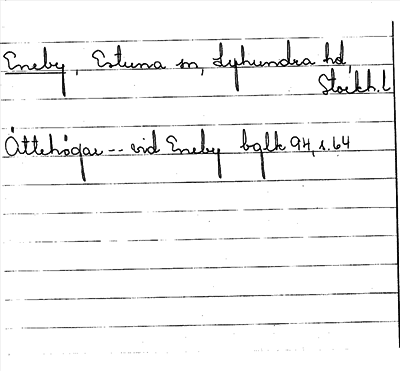 Eneby, Estuna sn, Lyhundra hd,
Stockh.l
Ättehögar -- vid Eneby bglk 94, s. 64